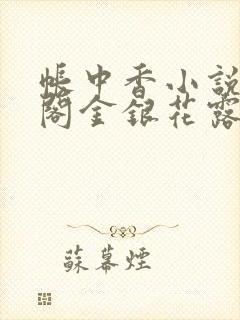 帳中香小說
閣金銀花露
蘇幕煙